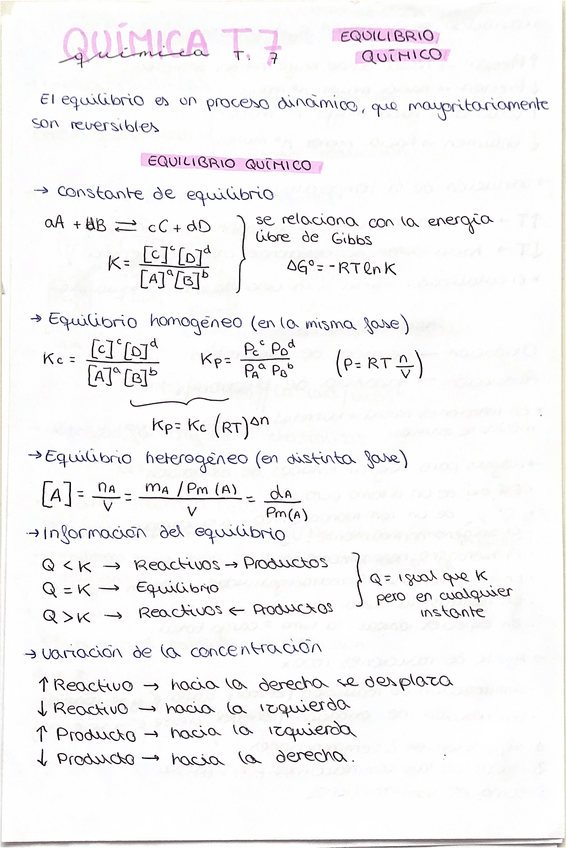 QUÍMICA T.7
química T. 7
EQUILIBRIO
QUÍMICO
El equilibrio es un proceso dinámico, que mayoritariamente
son reversibles
EQUILIBRIO QUÍMICO
→ constante de equilibrio
aA + bB ⇄ cC + dD
K = [C]^c [D]^d / [A]^a [B]^b
se relaciona con la energía
libre de Gibbs
ΔG° = -RT ln K
→ Equilibrio homogéneo (en la misma fase)
Kc = [C]^c [D]^d / [A]^a [B]^b   Kp = Pc^c PD^d / PA^a PB^b   (P = RT n/V)
Kp = Kc (RT)^Δn
→ Equilibrio heterogéneo (en distinta fase)
[A] = nA / V = mA / Pm (A) / V = dA / Pm(A)
→ Información del equilibrio
Q < K → Reactivos → Productos
Q = K → Equilibrio
Q > K → Reactivos ← Productos
Q = igual que K
pero en cualquier
instante
→ variación de la concentración
↑ Reactivo → hacia la derecha se desplaza
↓ Reactivo → hacia la izquierda
↑ Producto → hacia la izquierda
↓ Producto → hacia la derecha.